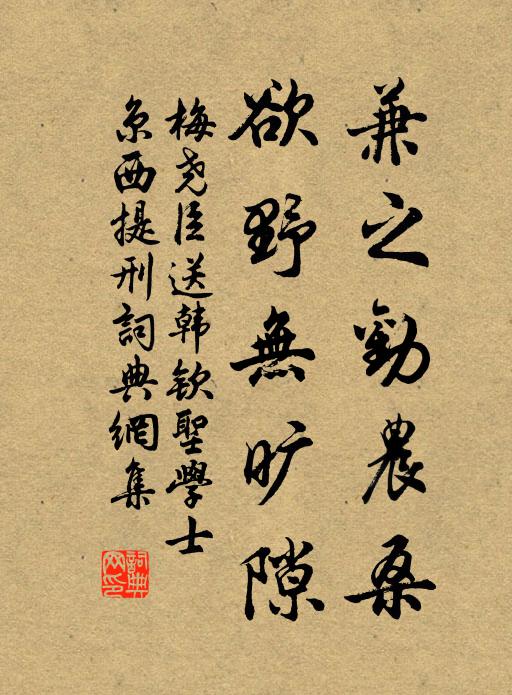 兼之勸農桑
欲野無旷隙
梅尧臣送韩钦聖學士
京西提刑詞典網集
詞典網印